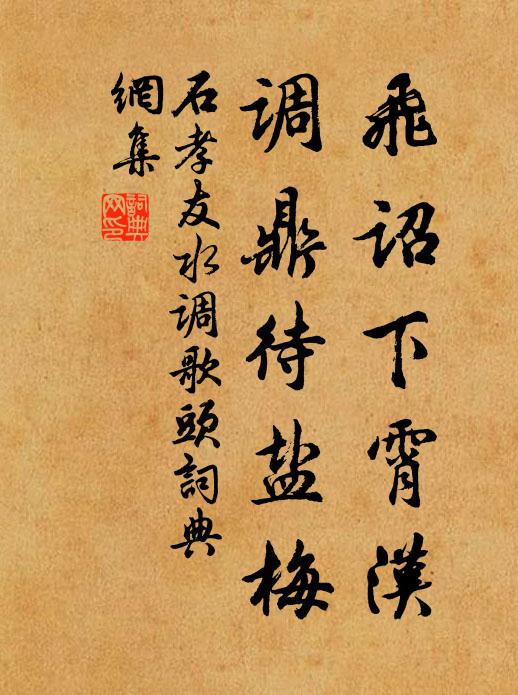 飛詔下霄漢
调鼎待盐梅
石孝友水调歌頭詞典
網集
詞典网印